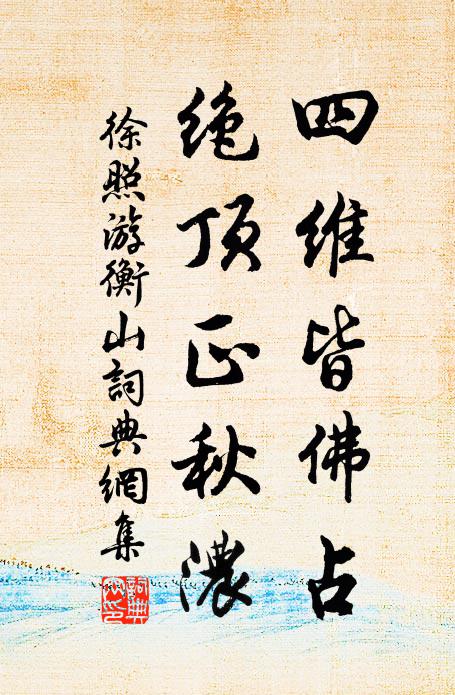 四维皆佛占
绝顶正秋浓
徐照游衡山詞典網集